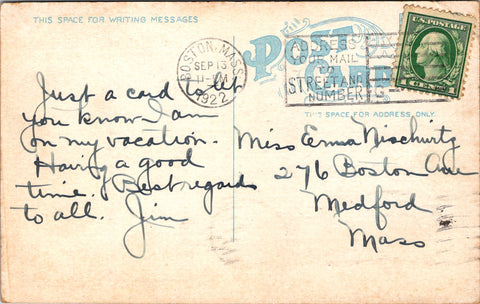 THIS SPACE FOR WRITING MESSAGES
POST CARD
BOSTON, MASS.
SEP 13
11-PM
1922
ADDRESS
YOUR MAIL
TO
STREET AND
NUMBER
U.S. POSTAGE
THIS SPACE FOR ADDRESS ONLY.
Just a card to let
you know I am
on my vacation.
Having a good
time. Best regards
to all. Jim
Miss Erma Nischurtz
276 Boston Ave
Medford
Mass